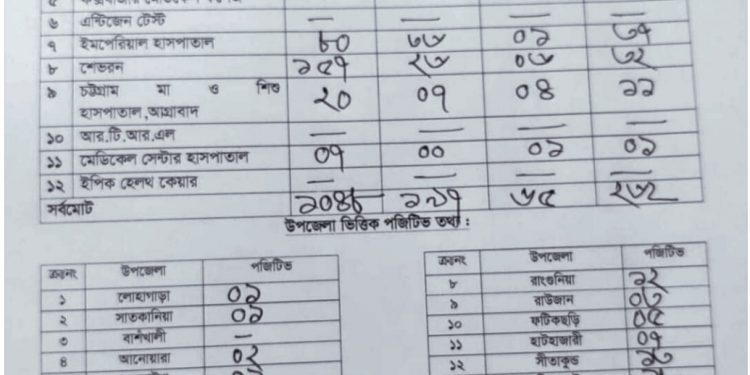 ৬ এন্টিজেন টেস্ট — — — —
৭ ইমপেরিয়াল হাসপাতাল ৮০ ৩৬ ০১ ৩৭
৮ শেভরন ১৫৭ ২৬ ০৬ ৩২
৯ চট্টগ্রাম মা ও শিশু
হাসপাতাল,আগ্রাবাদ ২০ ০৭ ০৪ ১১
১০ আর,টি,আর,এল — — — —
১১ মেডিকেল সেন্টার হাসপাতাল ০৭ ০০ ০১ ০১
১২ ইপিক হেলথ কেয়ার — — — —
সর্বমোট ৬৫
উপজেলা ভিত্তিক পজিটিভ তথ্য :
ক্রঃনং উপজেলা পজিটিভ
১ লোহাগাড়া ০১
২ সাতকানিয়া ০১
৩ বাঁশখালী —
৪ আনোয়ারা ০২
ক্রঃনং উপজেলা পজিটিভ
৮ রাংগুনিয়া ১২
৯ রাউজান
১০ ফটিকছড়ি ০৫
১১ হাটহাজারী ০৭
১২ সীতাকুন্ড